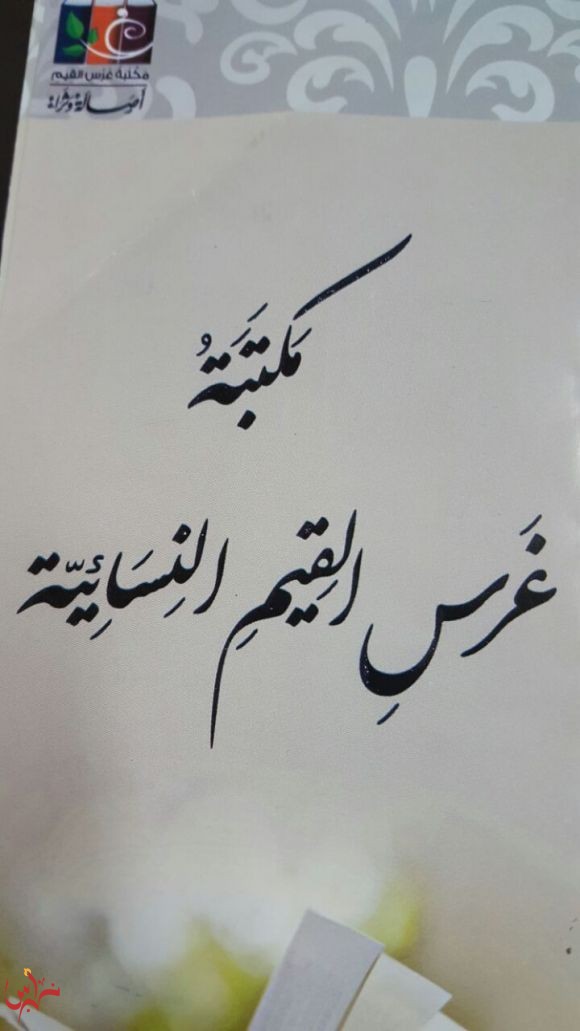 مكتبة غرس القيم
أصالة وثراء
مَكتَبَةُ
غَرسِ القِيمِ النِسَائِيّة